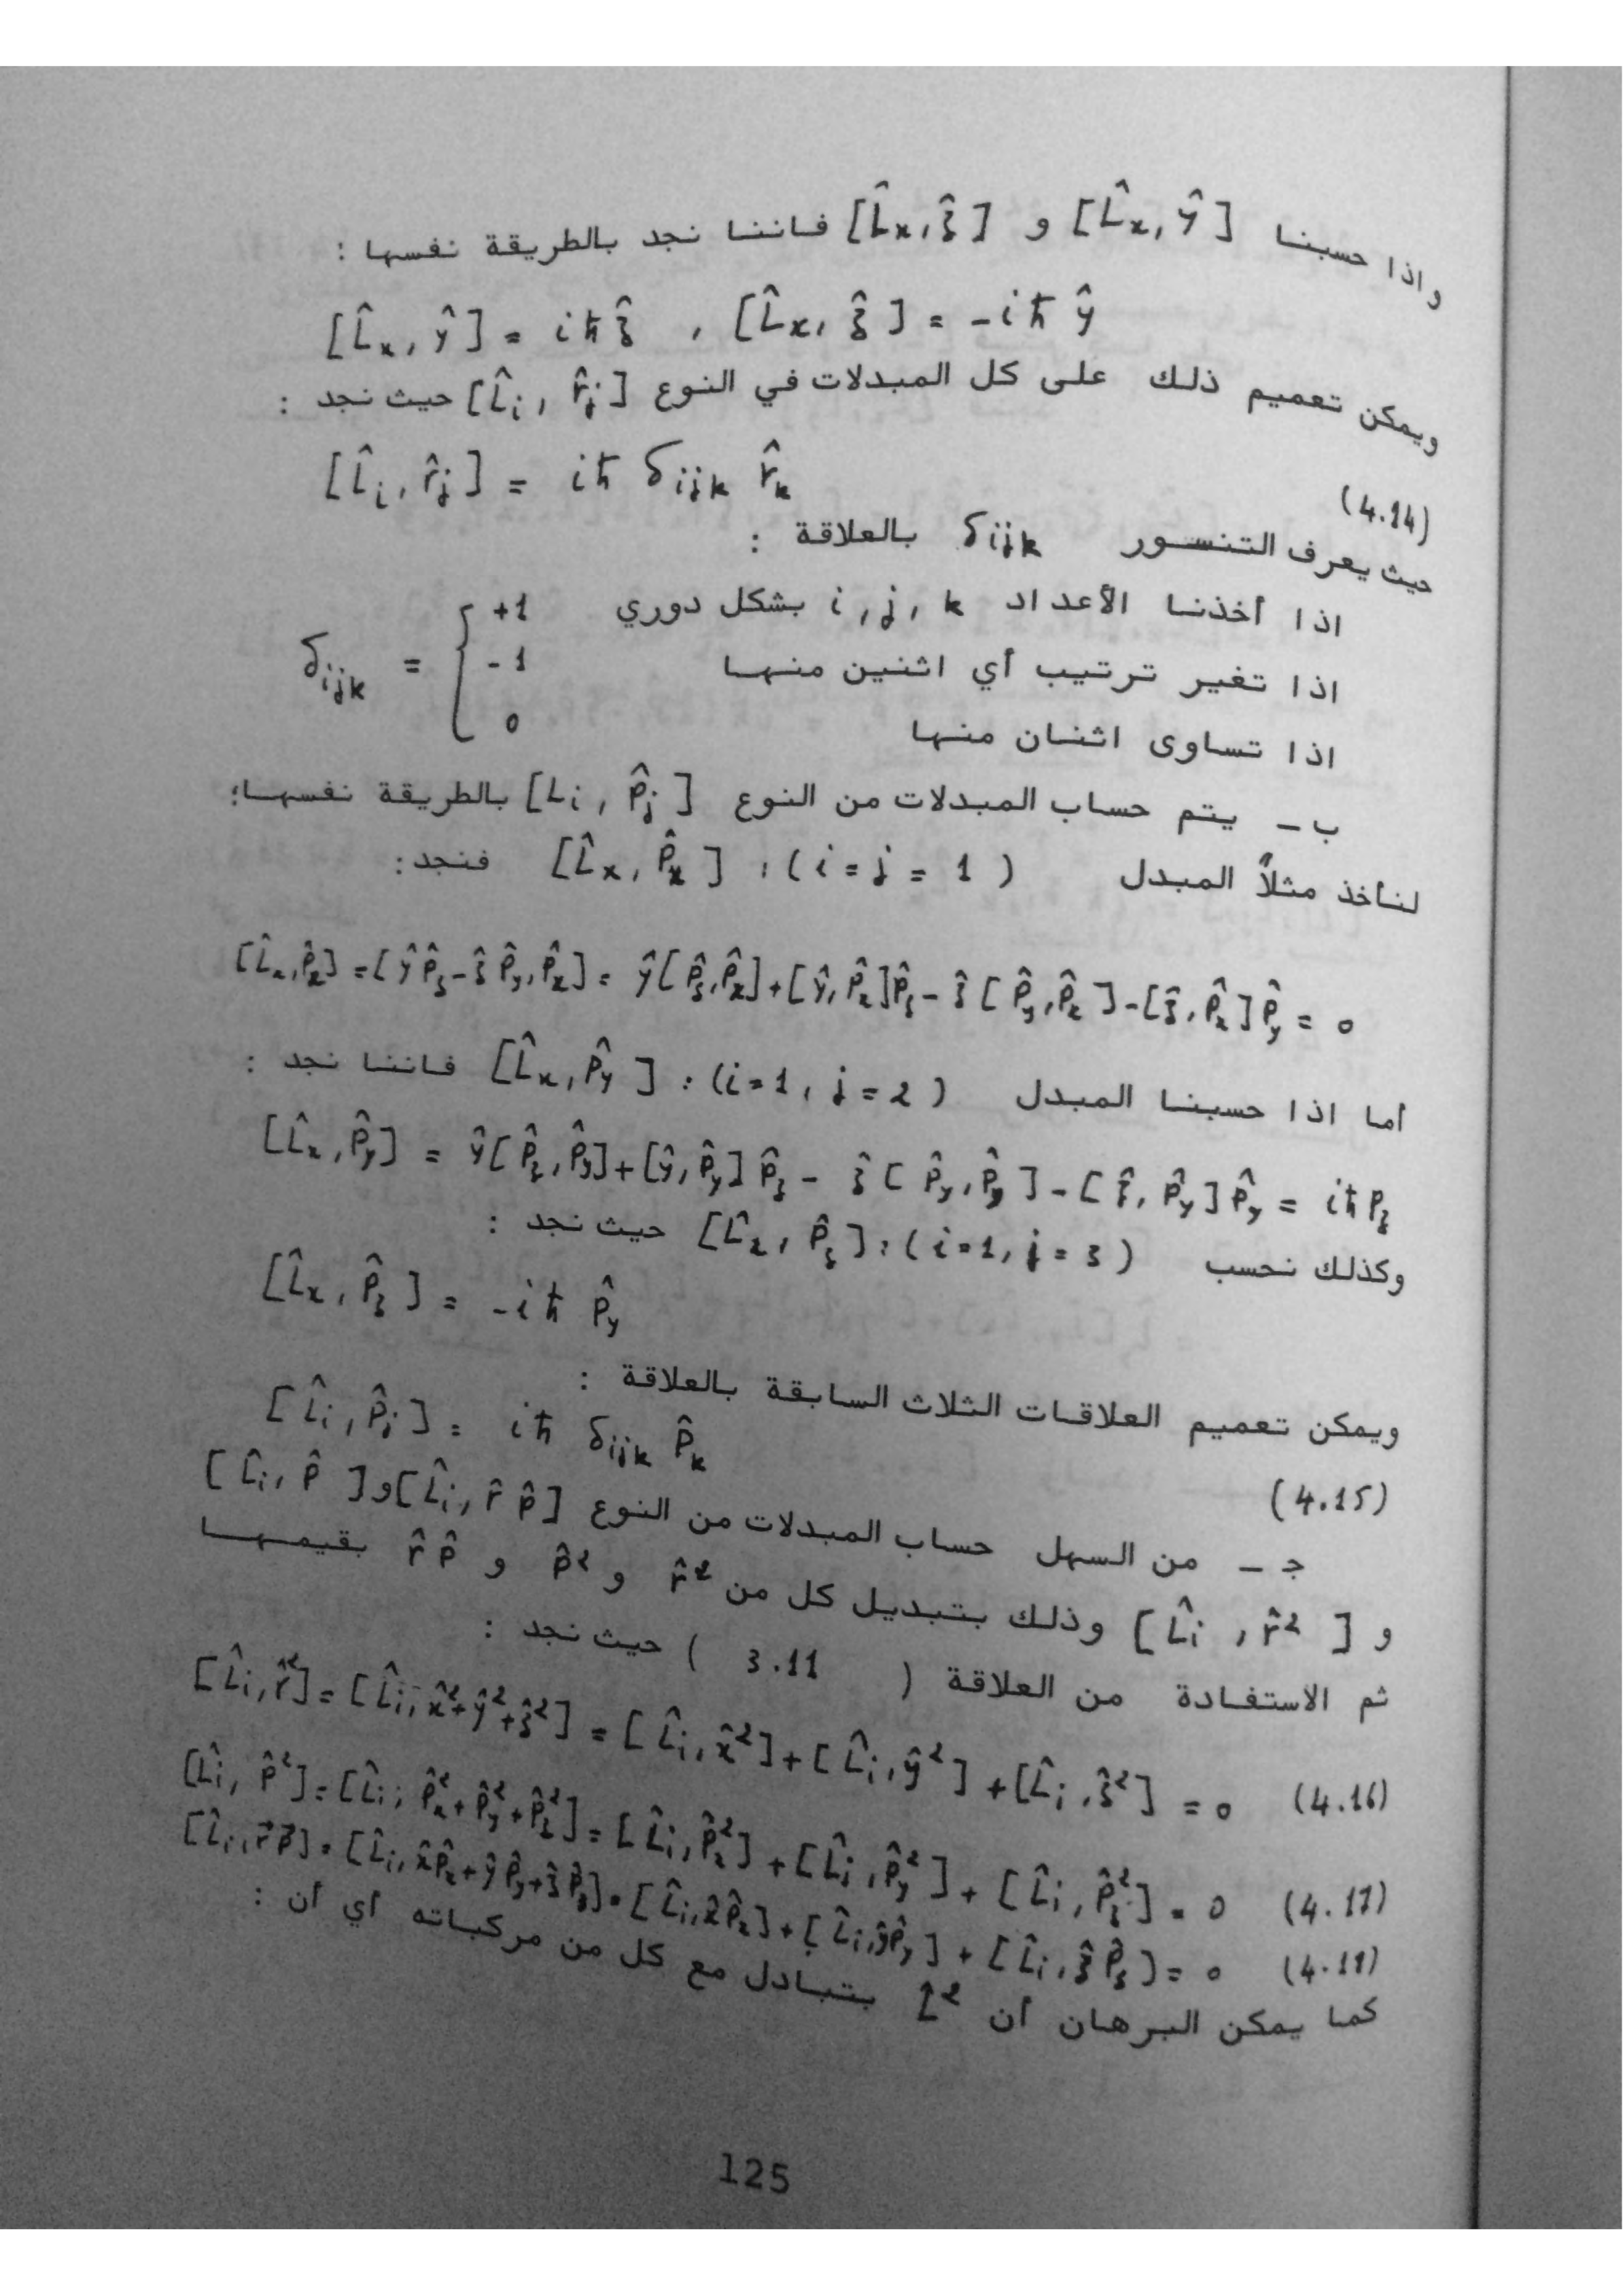 واذا حسبنا [L̂x, ŷ] و [L̂x, ẑ] فاننا نجد بالطريقة نفسها :
[L̂x, ŷ] = iħ ẑ , [L̂x, ẑ] = -iħ ŷ
ويمكن تعميم ذلك على كل المبدلات في النوع [L̂i, r̂j] حيث نجد :
[L̂i, r̂j] = iħ δijk r̂k (4.14)
حيث يعرف التنسور δijk بالعلاقة :
+1 اذا أخذنا الأعداد i, j, k بشكل دوري
δijk = { -1 اذا تغير ترتيب أي اثنين منها
0 اذا تساوى اثنان منها
ب - يتم حساب المبدلات من النوع [Li, p̂j] بالطريقة نفسها؛
لنأخذ مثلاً المبدل [L̂x, P̂x] : (i = j = 1) فنجد :
[L̂x, P̂x] = [ŷP̂z - ẑP̂y, P̂x] = ŷ[P̂z, P̂x] + [ŷ, P̂x]P̂z - ẑ[P̂y, P̂x] - [ẑ, P̂x]P̂y = 0
أما اذا حسبنا المبدل [L̂x, P̂y] : (i=1, j=2) فاننا نجد :
[L̂x, P̂y] = ŷ[P̂z, P̂y] + [ŷ, P̂y]P̂z - ẑ[P̂y, P̂y] - [ẑ, P̂y]P̂y = iħ Pz
وكذلك نحسب [L̂x, P̂z] : (i=1, j=3) حيث نجد :
[L̂x, P̂z] = -iħ P̂y
ويمكن تعميم العلاقات الثلاث السابقة بالعلاقة :
[L̂i, P̂j] = iħ δijk P̂k (4.15)
ج - من السهل حساب المبدلات من النوع [L̂i, r̂ p̂] و [L̂i, p̂ ]
و [L̂i, r̂²] وذلك بتبديل كل من r̂² و p̂² و r̂ p̂ بقيمها
ثم الاستفادة من العلاقة ( 3.11 ) حيث نجد :
[L̂i, r̂²] = [L̂i, x̂² + ŷ² + ẑ²] = [L̂i, x̂²] + [L̂i, ŷ²] + [L̂i, ẑ²] = 0 (4.16)
[L̂i, P̂²] = [L̂i, P̂x² + P̂y² + P̂z²] = [L̂i, P̂x²] + [L̂i, P̂y²] + [L̂i, P̂z²] = 0 (4.17)
[L̂i, r⃗p⃗] = [L̂i, x̂P̂x + ŷP̂y + ẑP̂z] = [L̂i, x̂P̂x] + [L̂i, ŷP̂y] + [L̂i, ẑP̂z] = 0
كما يمكن البرهان أن L̂² يتبادل مع كل من مركباته أي أن :
125